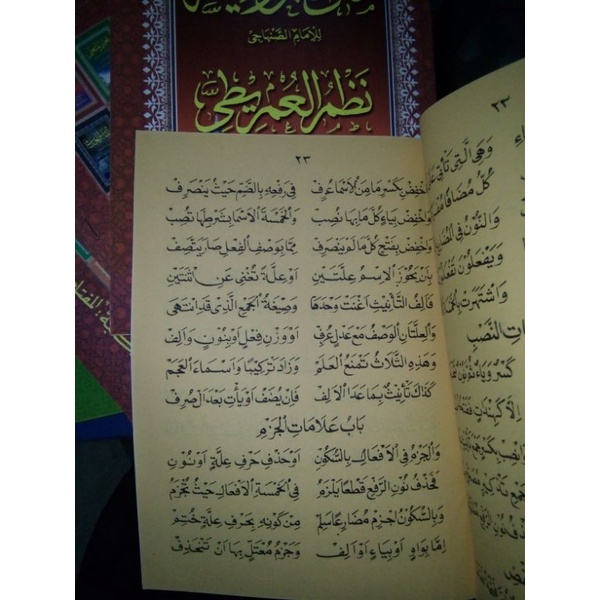 للامام الصنهاجي
نظم العمريطي
٢٣
وَاخْفِضْ بِكَسْرٍ مَا مِنَ الْاَسْمَا عُرِفْ فِى رَفْعِهِ بِالضَّمِّ حَيْثُ يَنْصَرِفْ
وَاخْفِضْ بِيَاءٍ كُلَّ مَا بِهَا نُصِبْ وَالْخَمْسَةَ الْاَسْمَا بِشَرْطِهَا تُصِبْ
وَاخْفِضْ بِفَتْحٍ كُلَّ مَا لَمْ يَنْصَرِفْ مِمَّا بِوَصْفِ الْفِعْلِ صَارَ يَتَّصِفْ
بِاَنْ يَحُوْزَ الْاِسْمُ عِلَّتَيْنِ اَوْ عِلَّةً تُغْنِى عَنِ اثْنَتَيْنِ
فَاَلِفُ التَّأْنِيْثِ اَغْنَتْ وَحْدَهَا وَصِيْغَةُ الْجَمْعِ الَّذِى قَدِ انْتَهَى
وَالْعِلَّتَانِ الْوَصْفُ مَعْ عَدْلٍ عُرِفْ اَوْ وَزْنِ فِعْلٍ اَوْ بِنُوْنٍ وَاَلِفْ
وَهٰذِهِ الثَّلَاثُ تَمْنَعُ الْعَلَمْ وَزَادَ تَرْكِيْبًا وَاَسْمَاءَ الْعَجَمْ
كَذَاكَ تَأْنِيْثٌ بِمَا عَدَا الْاَلِفْ فَاِنْ يُضَفْ اَوْ يَأْتِ بَعْدَ اَلْ صُرِفْ
بَابُ عَلَامَاتِ الْجَزْمِ
وَالْجَزْمُ فِى الْاَفْعَالِ بِالسُّكُوْنِ اَوْ حَذْفِ حَرْفِ عِلَّةٍ اَوْ نُوْنِ
فَحَذْفُ نُوْنِ الرَّفْعِ قَطْعًا يَلْزَمُ فِى الْخَمْسَةِ الْاَفْعَالِ حَيْثُ تُجْزَمُ
وَبِالسُّكُوْنِ اجْزِمْ مُضَارِعًا سَلِمْ مِنْ كَوْنِهِ بِحَرْفِ عِلَّةٍ خُتِمْ
اِمَّا بِوَاوٍ اَوْ بِيَاءٍ اَوْ اَلِفْ وَجَزْمُ مُعْتَلٍّ بِهَا اَنْ تَنْحَذِفْ
٢٣
وَهِىَ الَّتِى تَأْتِى
كُلُّ مُضَافًا
وَالنُّوْنُ فِى
وَيَفْعَلُوْنَ
وَاشْتَهَرَتْ
النَّصْبِ